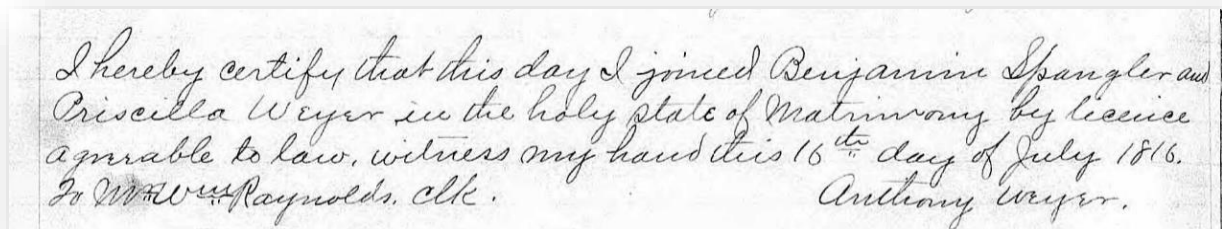 I hereby certify that this day I joined Benjamin Spangler and
Priscilla Weyer in the holy state of Matrimony by licence
agreable to law, witness my hand this 16th day of July 1816.
To Mr Wm Raynolds. clk. Anthony Weyer.